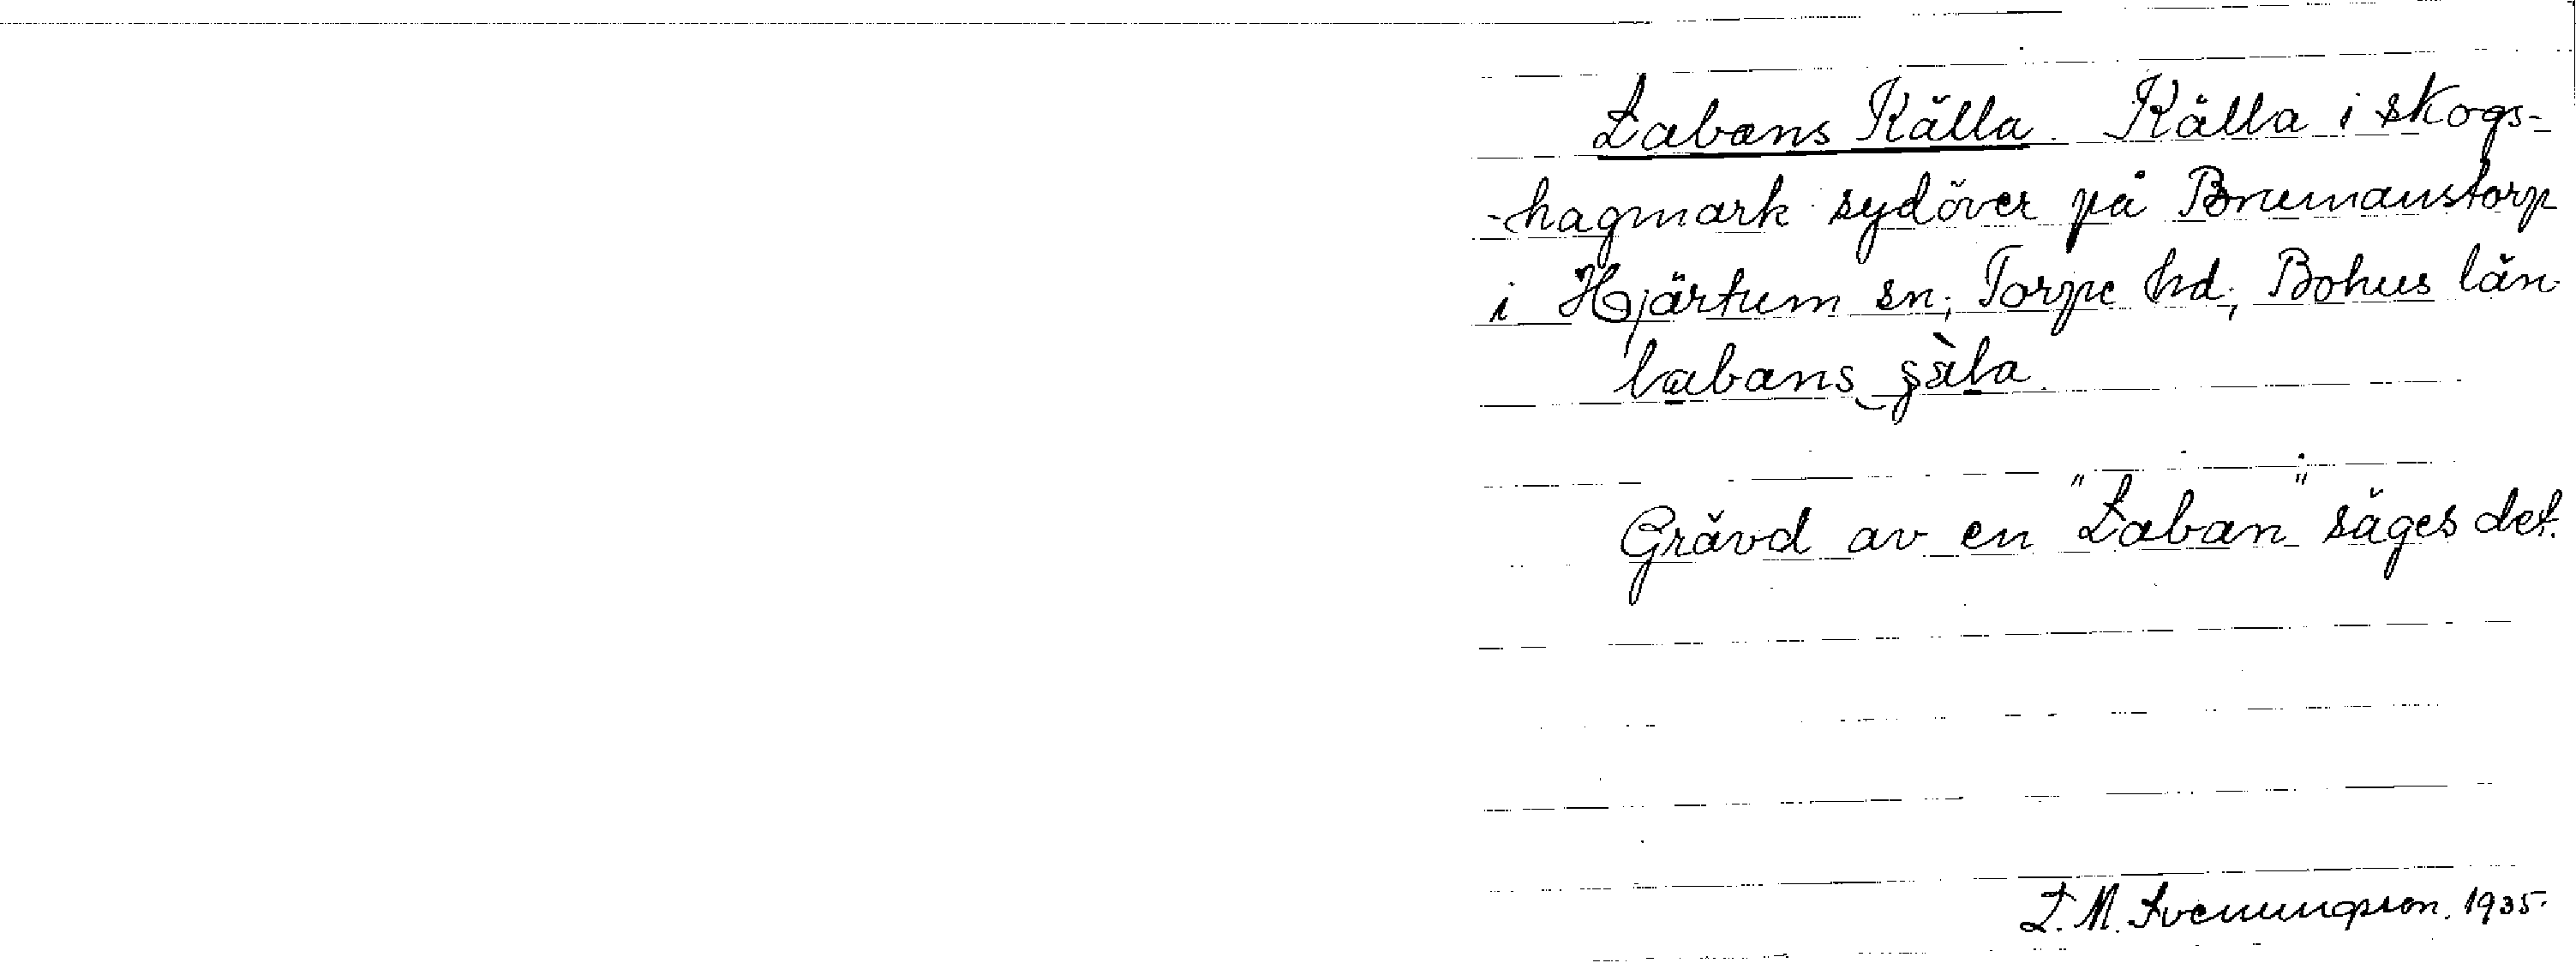 Labans Källa. Källa i skogs-
-hagmark sydöver på Brumanstorp
i Hjärtum sn; Torpe hd; Bohus län
labans
Grävd av en "Laban" säges det.
L. M. Svenungsson. 1935.